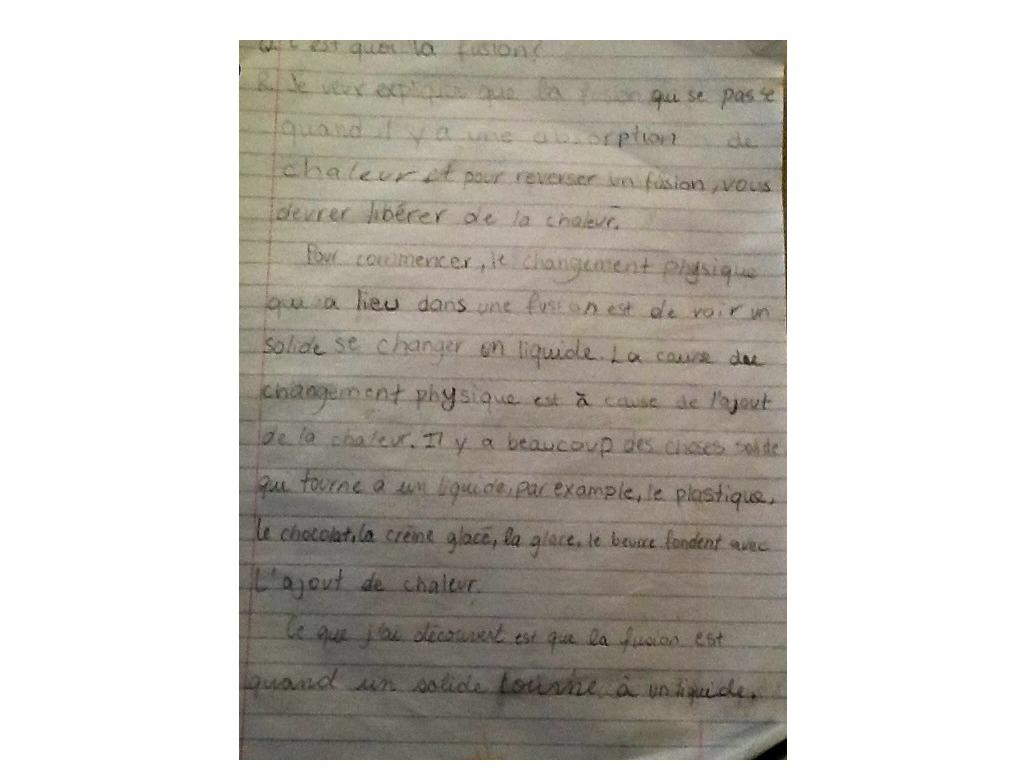 Q. C'est quoi la fusion?
R. Je veux expliquer que la fusion qui se passe
quand il y a une absorption de
chaleur et pour reverser un fusion, vous
devrer libérer de la chaleur.
Pour commencer, le changement physique
qui a lieu dans une fusion est de voir un
solide se changer en liquide. La cause de
changement physique est à cause de l'ajout
de la chaleur. Il y a beaucoup des choses solide
qui tourne à un liquide, par example, le plastique,
le chocolat, la crème glacé, la glace, le beurre fondent avec
L'ajout de chaleur.
Ce que j'ai découvert est que la fusion est
quand un solide tourne à un liquide.